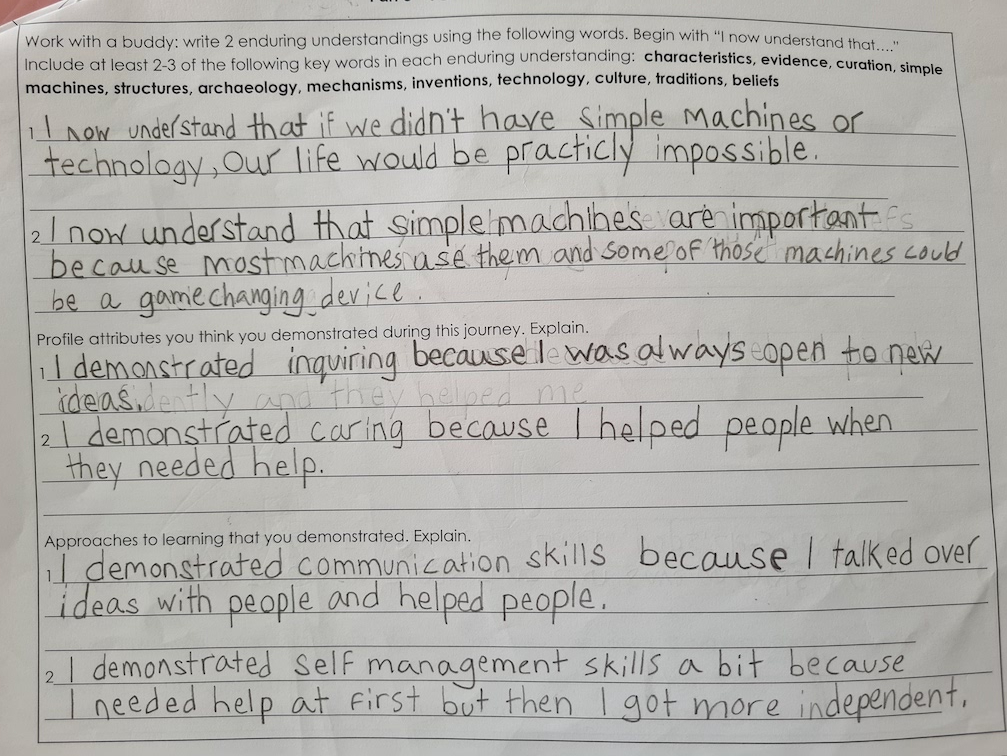 Work with a buddy: write 2 enduring understandings using the following words. Begin with "I now understand that...."
Include at least 2-3 of the following key words in each enduring understanding: characteristics, evidence, curation, simple
machines, structures, archaeology, mechanisms, inventions, technology, culture, traditions, beliefs
1 I now understand that if we didn't have simple machines or
technology, our life would be practicly impossible.
2 I now understand that simple machines are important
because most machines use them and some of those machines could
be a game changing device.
Profile attributes you think you demonstrated during this journey. Explain.
1 I demonstrated inquiring because I was always open to new
ideas.
2 I demonstrated caring because I helped people when
they needed help.
Approaches to learning that you demonstrated. Explain.
1 I demonstrated communication skills because I talked over
ideas with people and helped people.
2 I demonstrated self management skills a bit because
I needed help at first but then I got more independent.